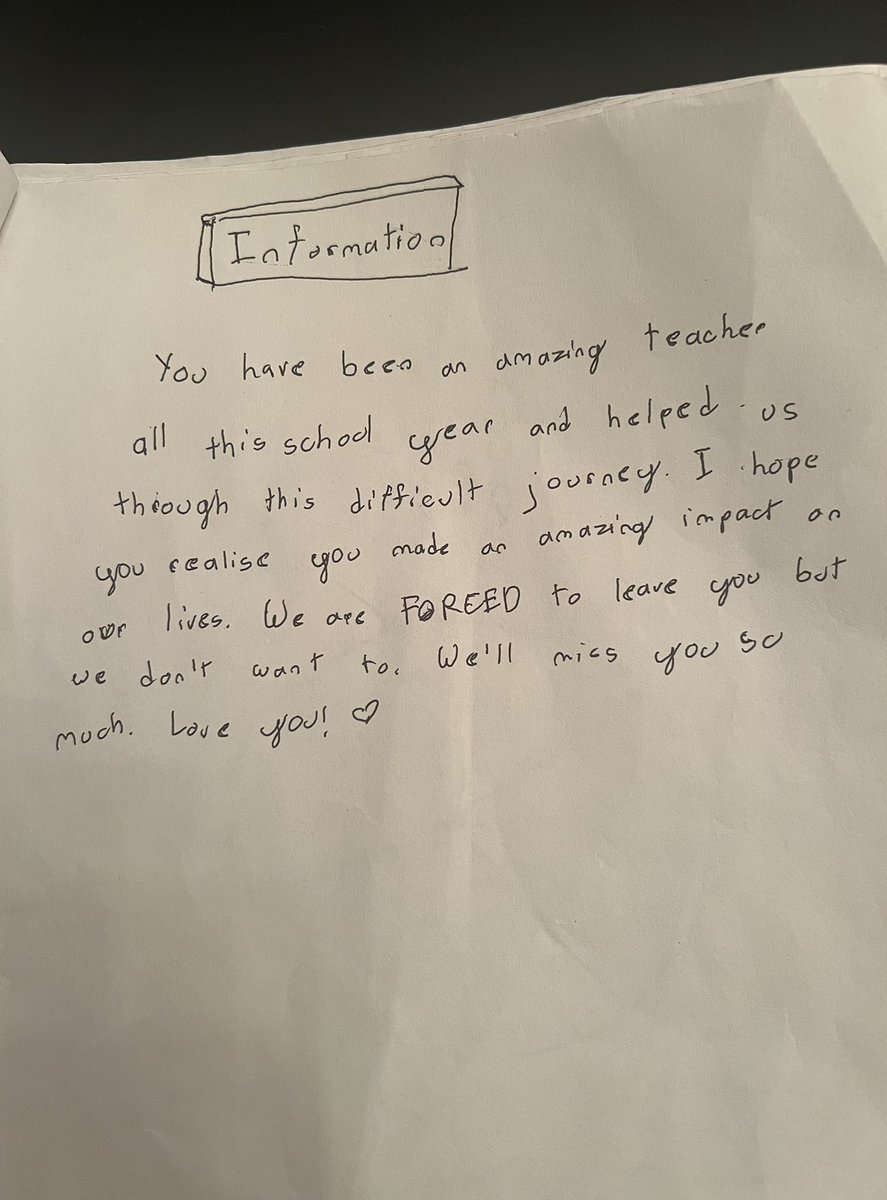 Information
You have been an amazing teacher
all this school year and helped us
through this difficult journey. I hope
you realise you made an amazing impact on
our lives. We are FOREED to leave you but
we don't want to. We'll miss you so
much. Love you! ♡